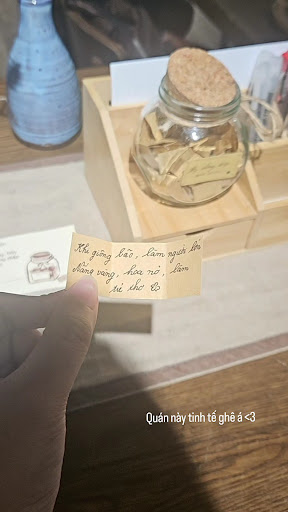 Khi giông bão, làm người lớn
Nắng vàng, hoa nở, làm
trẻ thơ
Quán này tinh tế ghê á <3